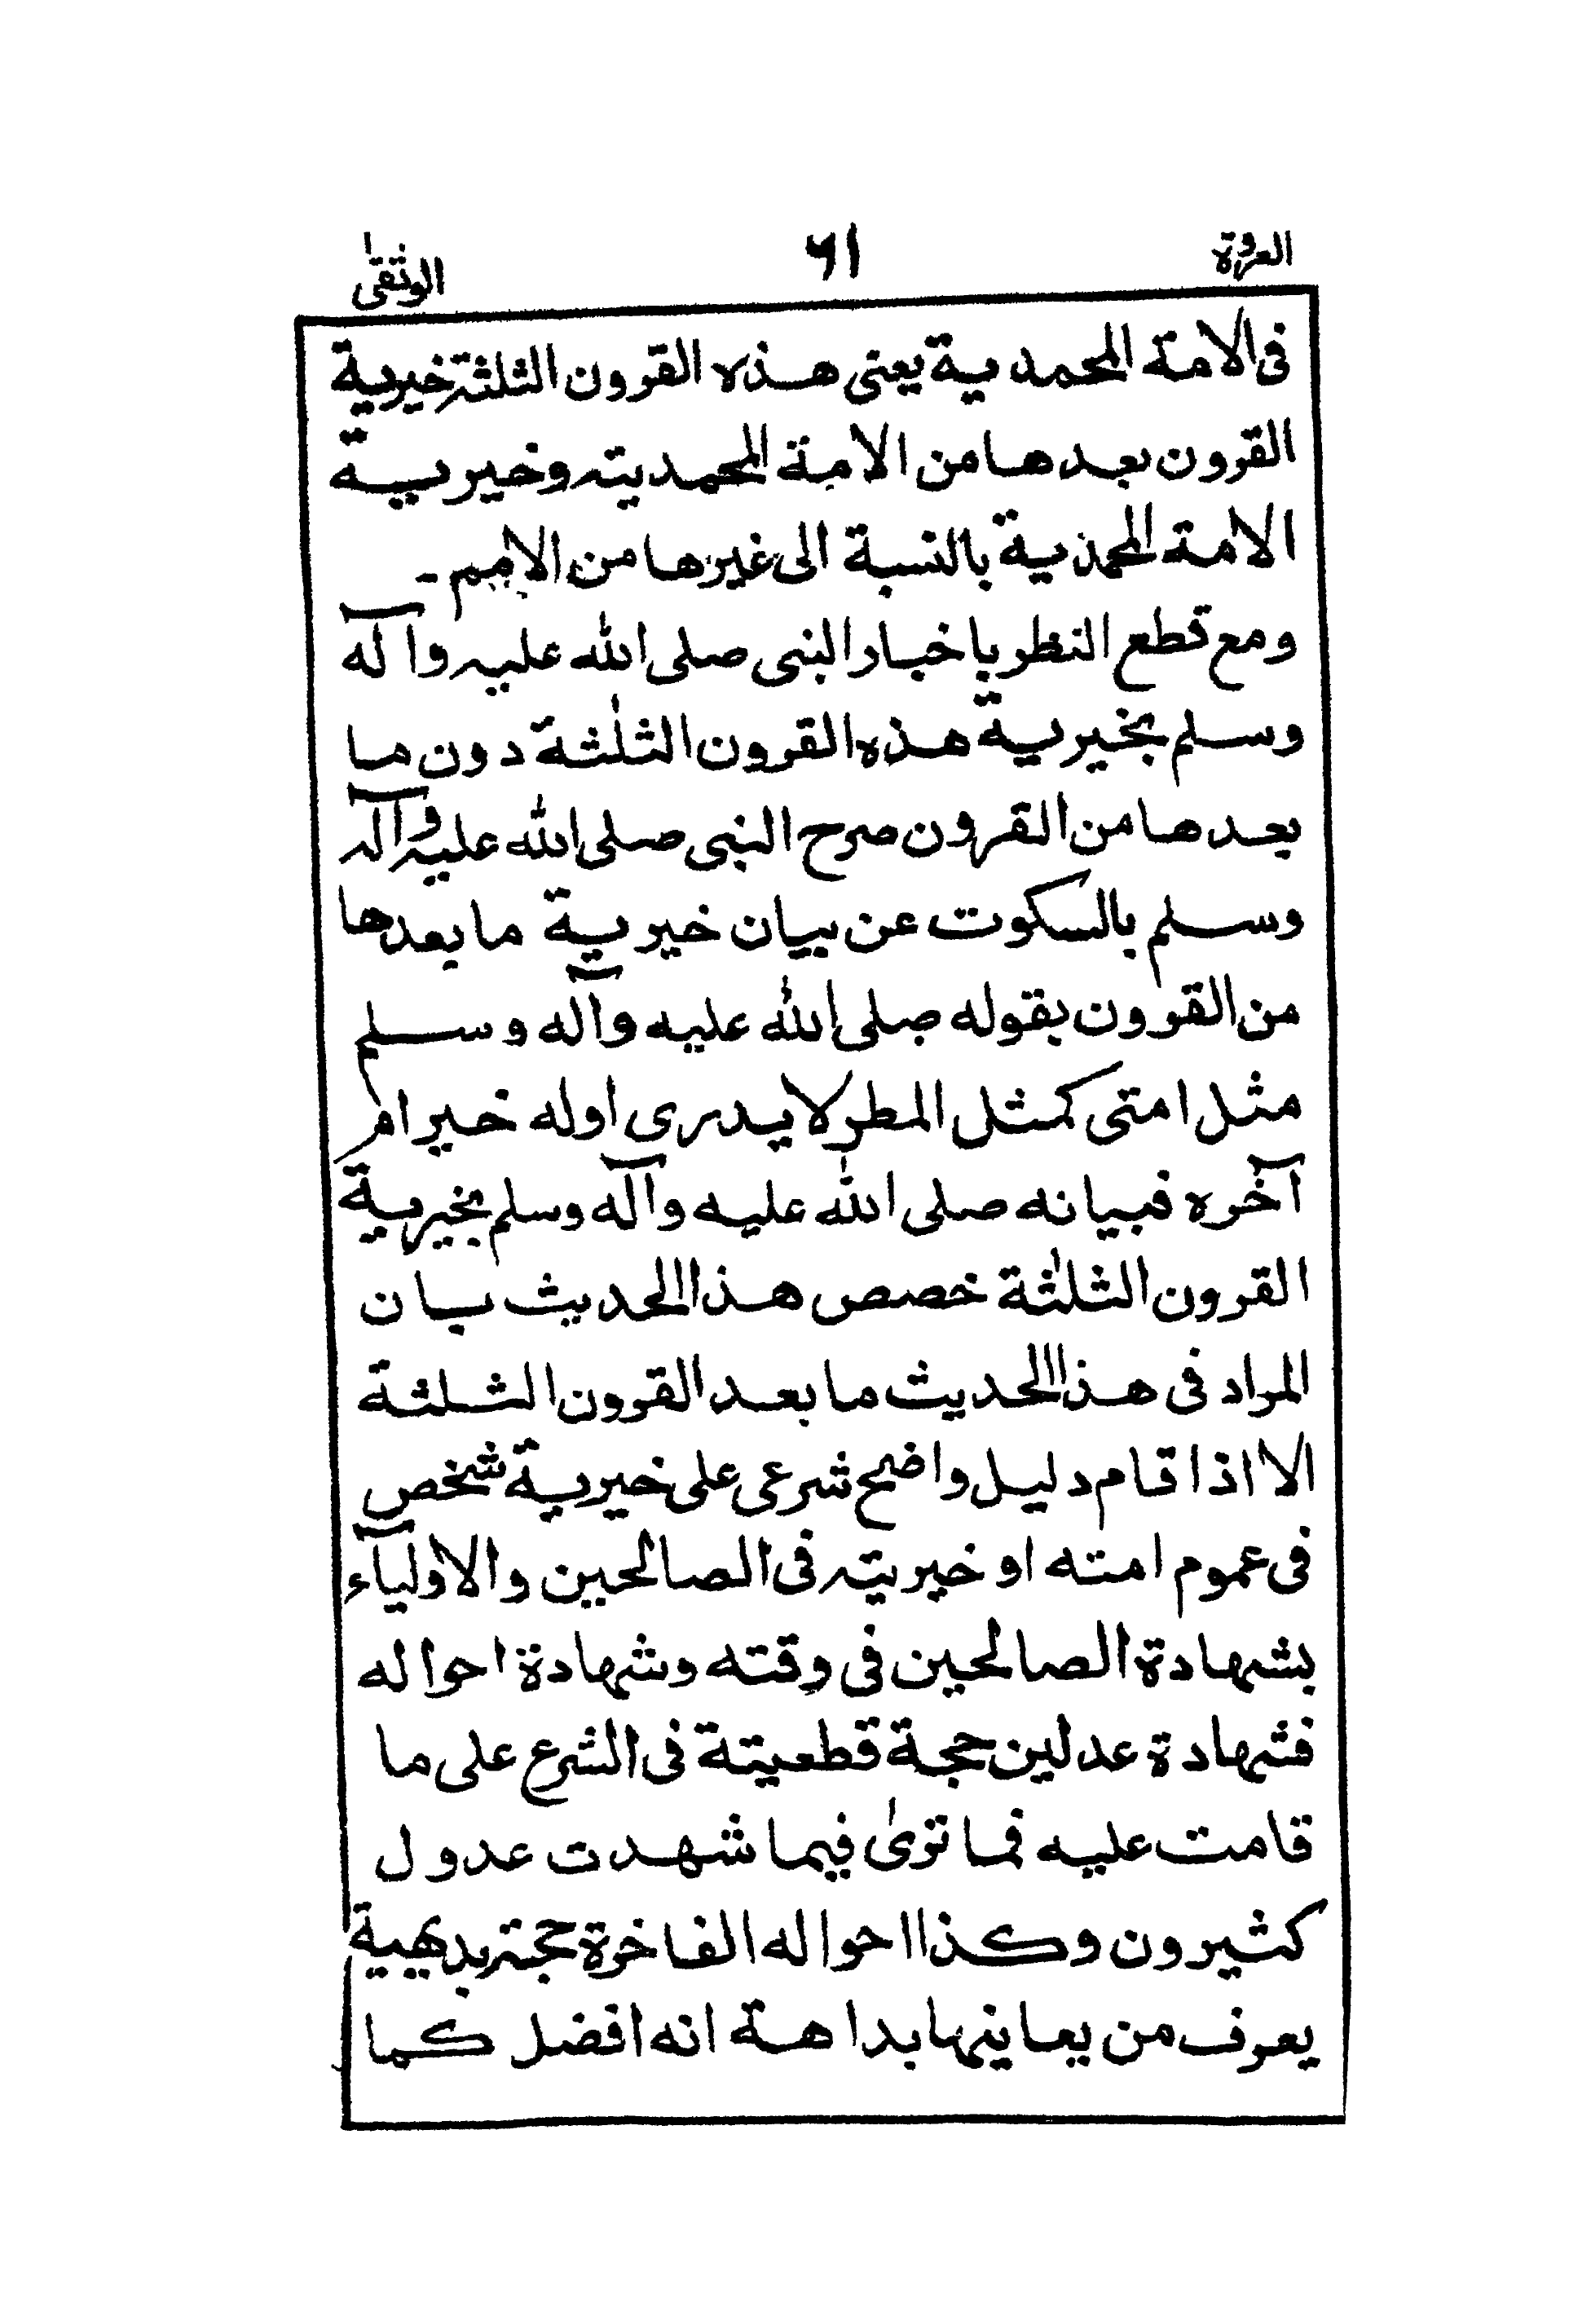 العروة ١٦ الوثقىٰ
فى الامة المحمدية يعنى هذه القرون الثلثة خيرية
القرون بعدها من الامة المحمدية وخيرية
الامة المحمدية بالنسبة الى غيرها من الامم ـ
ومع قطع النظر باخبار النبى صلى الله عليه وآله
وسلم بخيرية هذه القرون الثلٰثة دون ما
بعدها من القرون صرح النبى صلى الله عليه وآله
وسلم بالسكوت عن بيان خيرية ما بعدها
من القرون بقوله صلى الله عليه وآله وسلم
مثل امتى كمثل المطر لا يدرى اوله خير ام
آخره فبيانه صلى الله عليه وآله وسلم بخيرية
القرون الثلٰثة خصص هذا الحديث ببان
المراد فى هذا الحديث ما بعد القرون الثلثة
الا اذا قام دليل واضح شرعى على خيرية شخص
فى عموم امته او خيريته فى الصالحين والاوليآء
بشهادة الصالحين فى وقته وشهادة احواله
فشهادة عدلين حجة قطعيتة فى الشرع على ما
قامت عليه فما ترىٰ فيما شهدت عدول
كثيرون وكذا احواله الفاخرة حجة بديهية
يعرف من يعاينها بداهة انه افضل كما